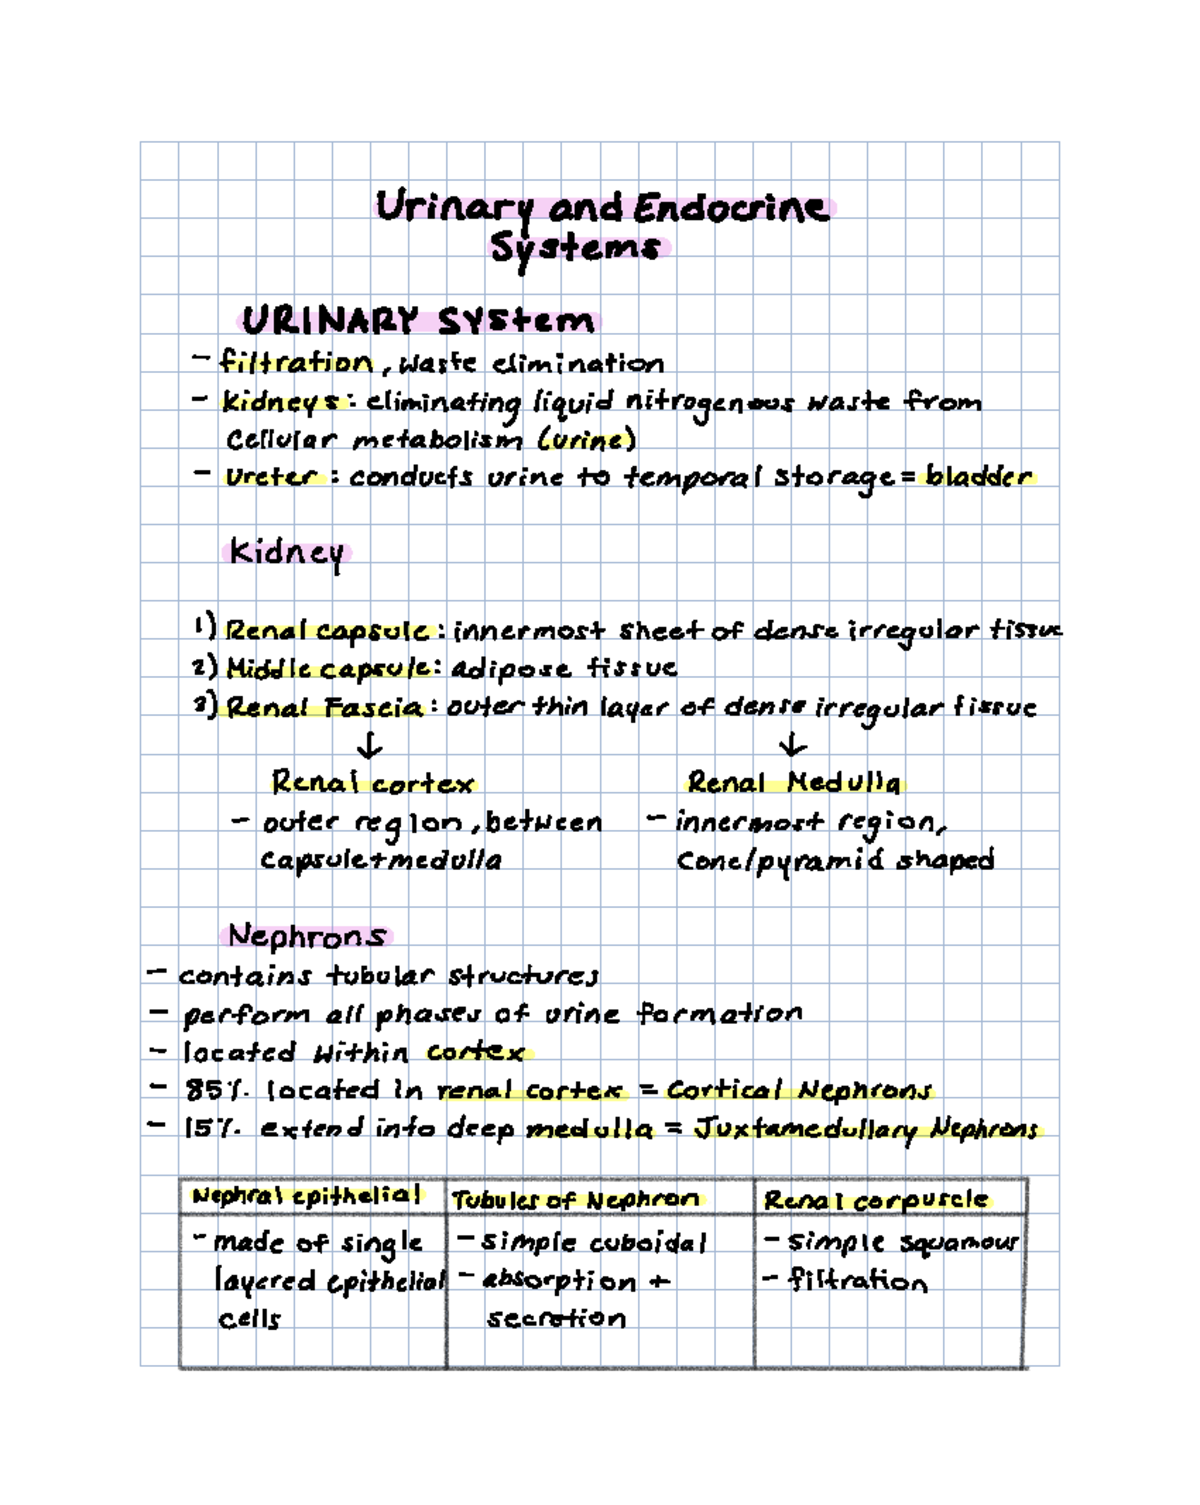 Urinary and Endocrine
Systems
URINARY System
- filtration, waste elimination
- Kidneys: eliminating liquid nitrogenous waste from
cellular metabolism (urine)
- Ureter: conducts urine to temporal storage = bladder
Kidney
1) Renal capsule: innermost sheet of dense irregular tissue
2) Middle capsule: adipose tissue
3) Renal Fascia: outer thin layer of dense irregular tissue
↓ ↓
Renal cortex Renal Medulla
- outer region, between - innermost region,
capsule+medulla Cone/pyramid shaped
Nephrons
- contains tubular structures
- perform all phases of urine formation
- located within cortex
- 85% located in renal cortex = Cortical Nephrons
- 15% extend into deep medulla = Juxtamedullary Nephrons
Nephral epithelial Tubules of Nephron Renal corpuscle
- made of single - simple cuboidal - simple squamous
layered epithelial - absorption + - filtration
cells secretion